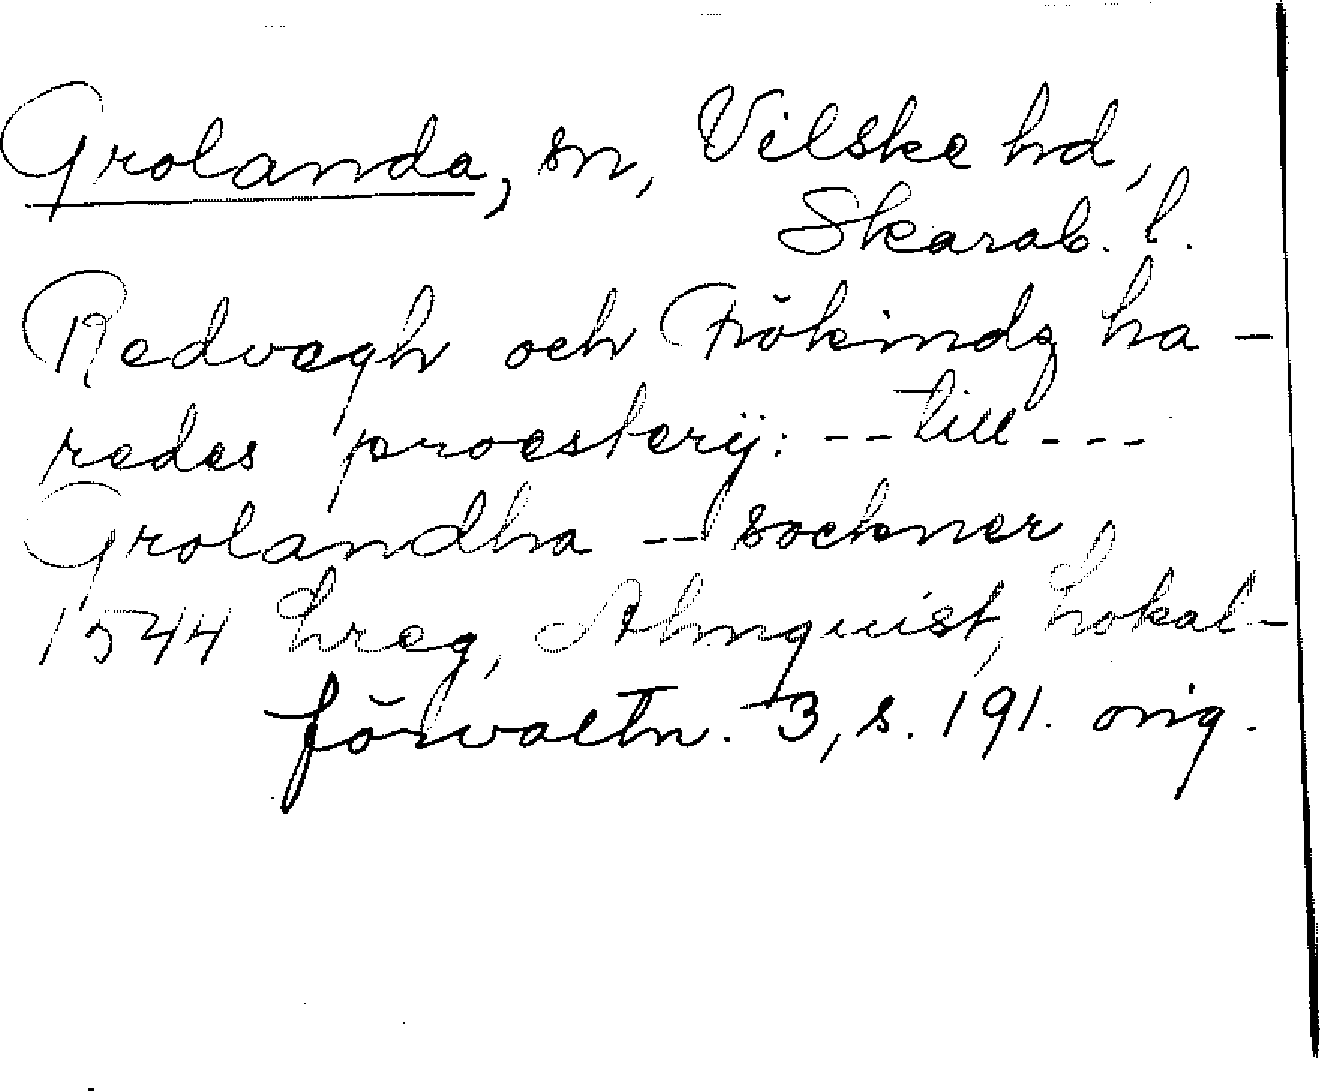 Grolanda, sn, Vilske hd,
Skarab. l.
Redvegh och Frökindz ha-
redes proesterij: -- till ---
Grolandha -- sockner
1544 Lreg, Almquist, Lokal-
förvaltn. 3, s. 191. orig.